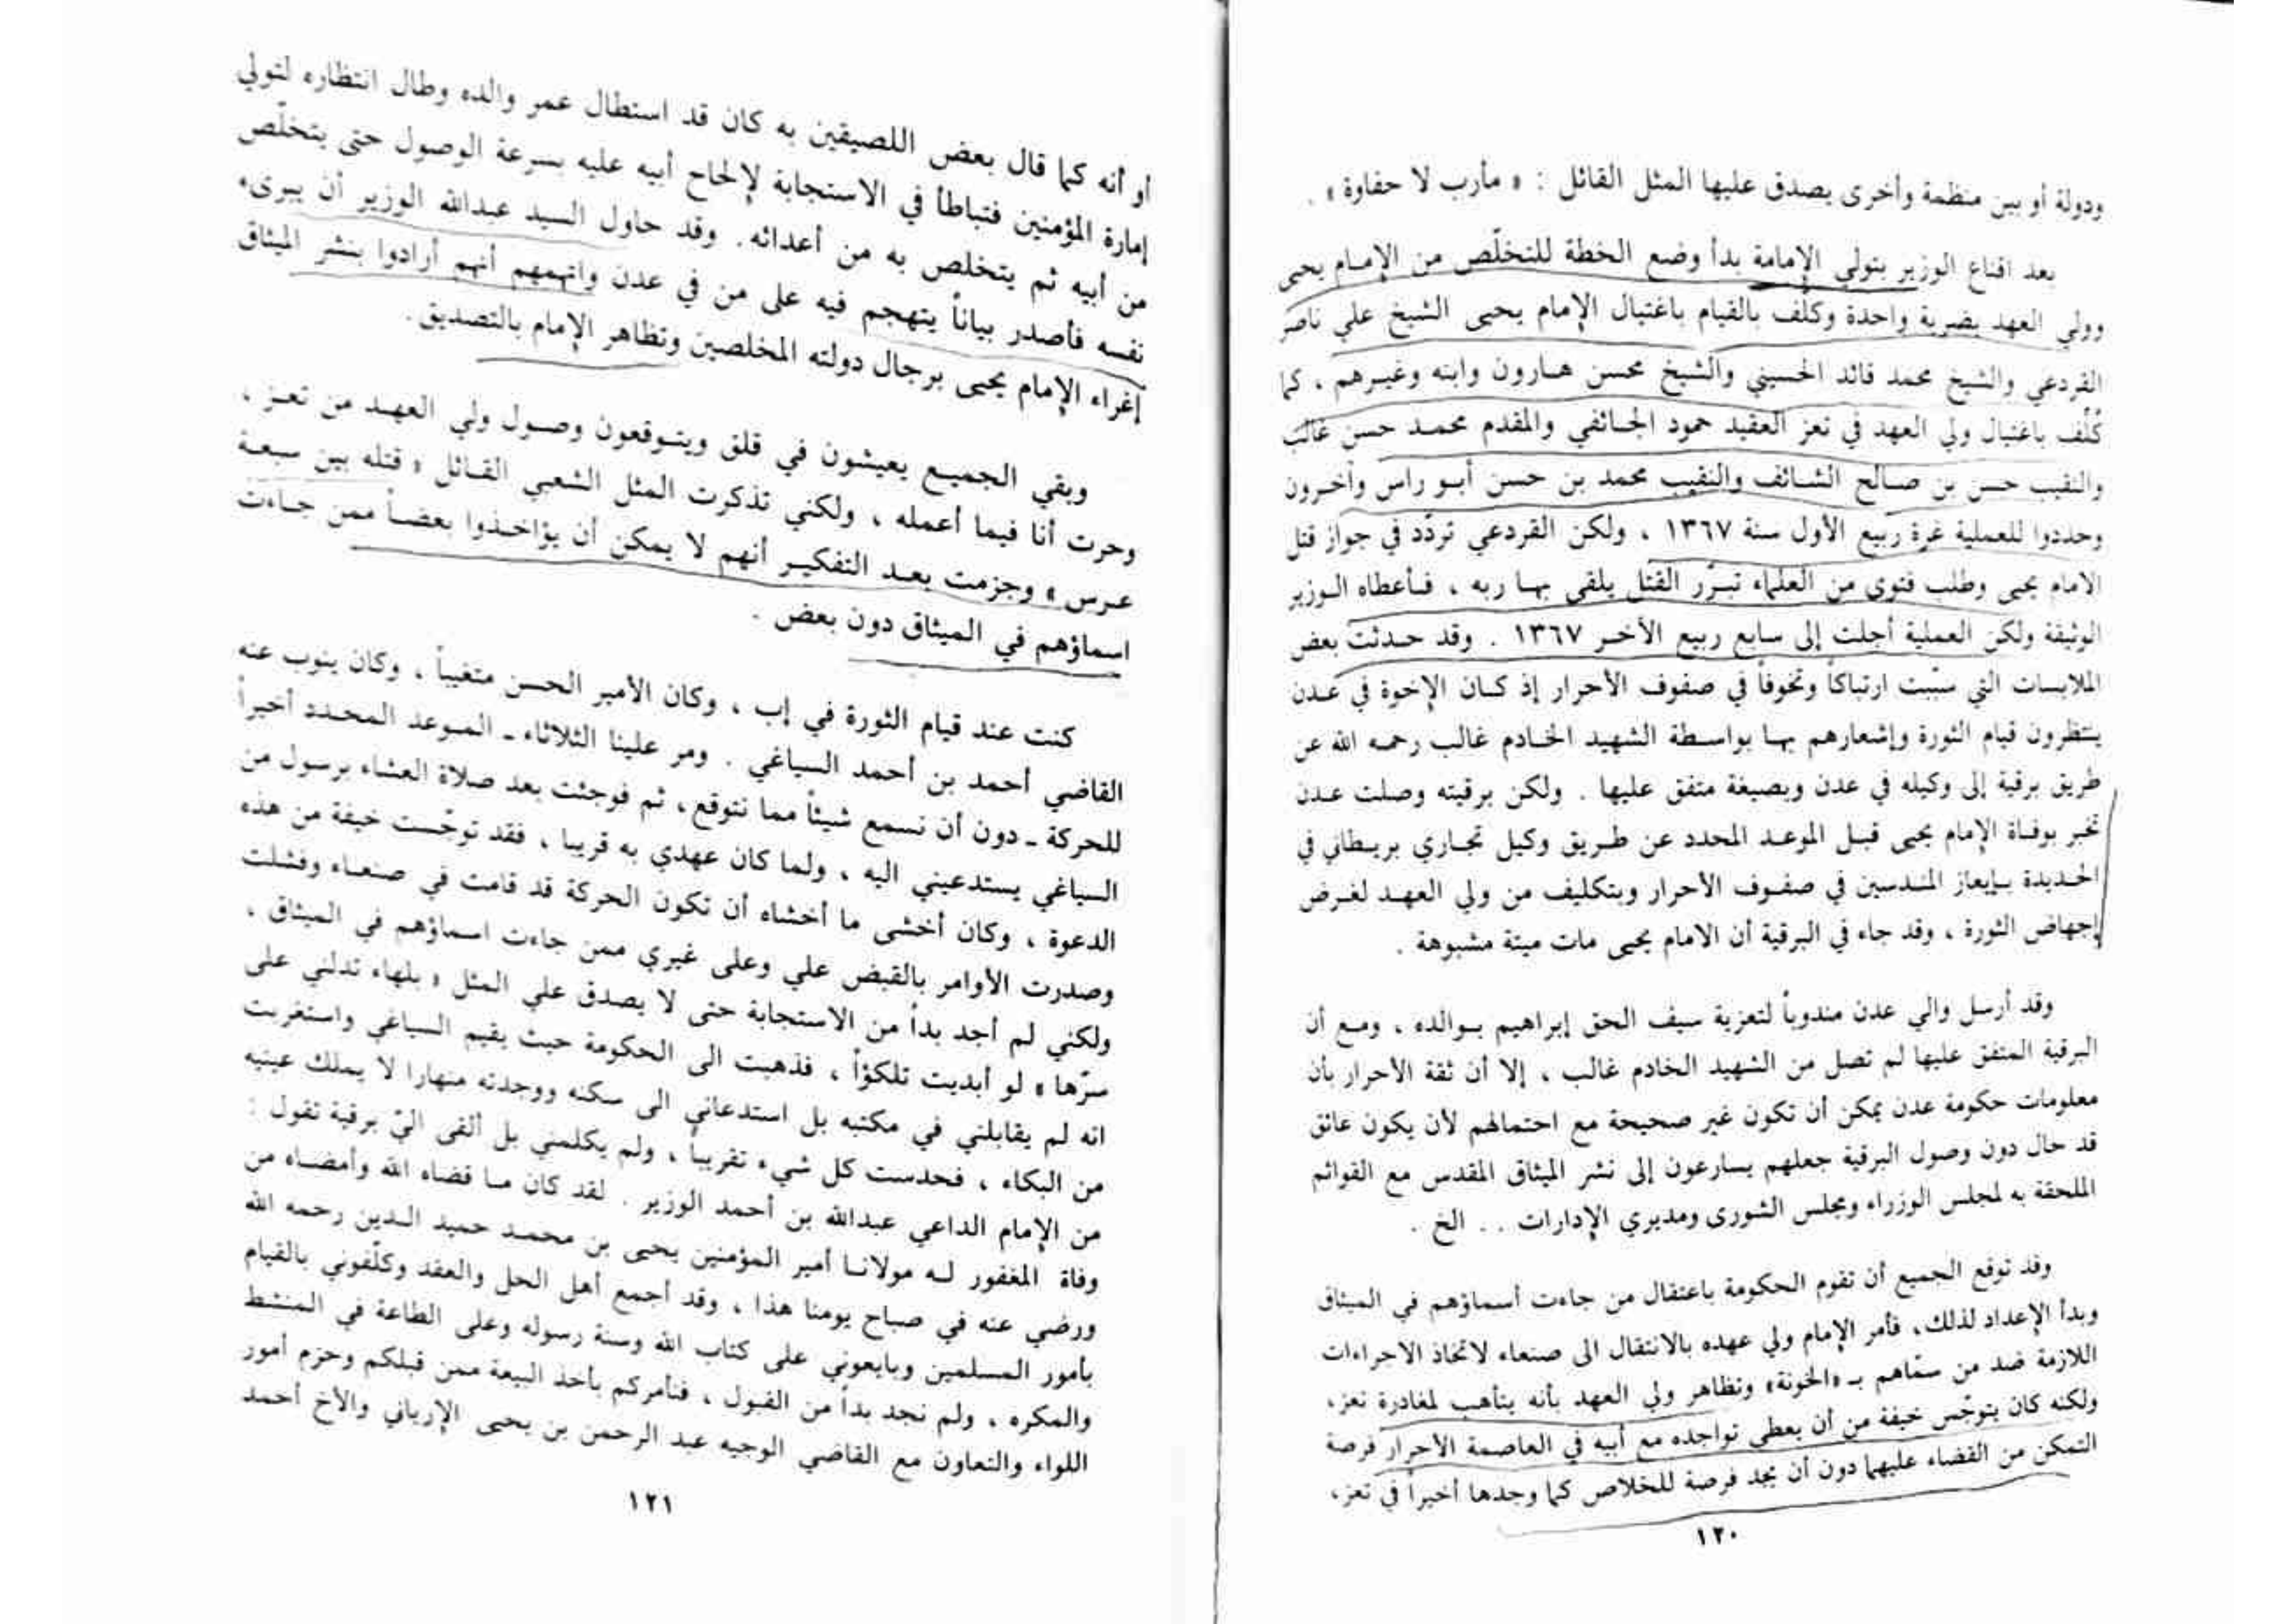 ودولة أو بين منظمة وأخرى يصدق عليها المثل القائل : « مأرب لا حفاوة » .
بعد اقناع الوزير بتولي الإمامة بدأ وضع الخطة للتخلّص من الإمام يحيى
وولي العهد بضربة واحدة وكلّف بالقيام باغتيال الإمام يحيى الشيخ علي ناصر
القردعي والشيخ محمد قائد الحسيني والشيخ محسن هارون وابنه وغيرهم ، كما
كُلّف باغتيال ولي العهد في تعز العقيد حمود الجائفي والمقدم محمد حسن غالب
والنقيب حسن بن صالح الشائف والنقيب محمد بن حسن أبو راس وآخرون
وحددوا للعملية غرة ربيع الأول سنة ١٣٦٧ ، ولكن القردعي تردّد في جواز قتل
الامام يحيى وطلب فتوى من العلماء تبرّر القتل يلقى بها ربه ، فأعطاه الوزير
الوثيقة ولكن العملية أجلت إلى سابع ربيع الآخر ١٣٦٧ . وقد حدثت بعض
الملابسات التي سبّبت ارتباكاً وتخوفاً في صفوف الأحرار إذ كان الإخوة في عدن
ينتظرون قيام الثورة وإشعارهم بها بواسطة الشهيد الخادم غالب رحمه الله عن
طريق برقية إلى وكيله في عدن وبصيغة متفق عليها . ولكن برقيته وصلت عدن
تخبر بوفاة الإمام يحيى قبل الموعد المحدد عن طريق وكيل تجاري بريطاني في
الحديدة بإيعاز المندسين في صفوف الأحرار وبتكليف من ولي العهد لغرض
إجهاض الثورة ، وقد جاء في البرقية أن الامام يحيى مات ميتة مشبوهة .
وقد أرسل والي عدن مندوباً لتعزية سيف الحق إبراهيم بوالده ، ومع أن
البرقية المتفق عليها لم تصل من الشهيد الخادم غالب ، إلا أن ثقة الأحرار بأن
معلومات حكومة عدن يمكن أن تكون غير صحيحة مع احتمالهم لأن يكون عائق
قد حال دون وصول البرقية جعلهم يسارعون إلى نشر الميثاق المقدس مع القوائم
الملحقة به لمجلس الوزراء ومجلس الشورى ومديري الإدارات . . الخ .
وقد توقع الجميع أن تقوم الحكومة باعتقال من جاءت أسماؤهم في الميثاق
وبدأ الإعداد لذلك، فأمر الإمام ولي عهده بالانتقال الى صنعاء لاتخاذ الاجراءات
اللازمة ضد من سمّاهم بـ «الخونة» وتظاهر ولي العهد بأنه يتأهب لمغادرة تعز،
ولكنه كان يتوجّس خيفة من أن يعطي تواجده مع أبيه في العاصمة الأحرار فرصة
التمكن من القضاء عليهما دون أن يجد فرصة للخلاص كما وجدها أخيراً في تعز،
١٢٠
أو أنه كما قال بعض اللصيقين به كان قد استطال عمر والده وطال انتظاره لتولي
إمارة المؤمنين فتباطأ في الاستجابة لإلحاح أبيه عليه بسرعة الوصول حتى يتخلّص
من أبيه ثم يتخلص به من أعدائه. وقد حاول السيد عبدالله الوزير أن يبرىء
نفسه فأصدر بياناً يتهجم فيه على من في عدن واتهمهم أنهم أرادوا بنشر الميثاق
إغراء الإمام يحيى برجال دولته المخلصين وتظاهر الإمام بالتصديق.
وبقي الجميع يعيشون في قلق ويتوقعون وصول ولي العهد من تعز ،
وحرت أنا فيما أعمله ، ولكني تذكرت المثل الشعبي القائل « قتله بين سبعة
عرس » وجزمت بعد التفكير أنهم لا يمكن أن يؤاخذوا بعضاً ممن جاءت
اسماؤهم في الميثاق دون بعض .
كنت عند قيام الثورة في إب ، وكان الأمير الحسن متغيباً ، وكان ينوب عنه
القاضي أحمد بن أحمد السياغي . ومر علينا الثلاثاء ـ الموعد المحدد أخيراً
للحركة ـ دون أن نسمع شيئاً مما نتوقع، ثم فوجئت بعد صلاة العشاء برسول من
السياغي يستدعيني اليه ، ولما كان عهدي به قريبا ، فقد توجّست خيفة من هذه
الدعوة ، وكان أخشى ما أخشاه أن تكون الحركة قد قامت في صنعاء وفشلت
وصدرت الأوامر بالقبض علي وعلى غيري ممن جاءت اسماؤهم في الميثاق ،
ولكني لم أجد بداً من الاستجابة حتى لا يصدق علي المثل « بلهاء تدلني على
سرّها » لو أبديت تلكؤاً ، فذهبت الى الحكومة حيث يقيم السياغي واستغربت
انه لم يقابلني في مكتبه بل استدعاني الى سكنه ووجدته منهارا لا يملك عينيه
من البكاء ، فحدست كل شيء تقريباً ، ولم يكلمني بل ألقى اليّ برقية تقول :
من الإمام الداعي عبدالله بن أحمد الوزير . لقد كان ما قضاه الله وأمضاه من
وفاة المغفور له مولانا أمير المؤمنين يحيى بن محمد حميد الدين رحمه الله
ورضي عنه في صباح يومنا هذا ، وقد أجمع أهل الحل والعقد وكلّفوني بالقيام
بأمور المسلمين وبايعوني على كتاب الله وسنة رسوله وعلى الطاعة في المنشط
والمكره ، ولم نجد بداً من القبول ، فنأمركم بأخذ البيعة ممن قبلكم وحزم أمور
اللواء والتعاون مع القاضي الوجيه عبد الرحمن بن يحيى الإرياني والأخ أحمد
١٢١